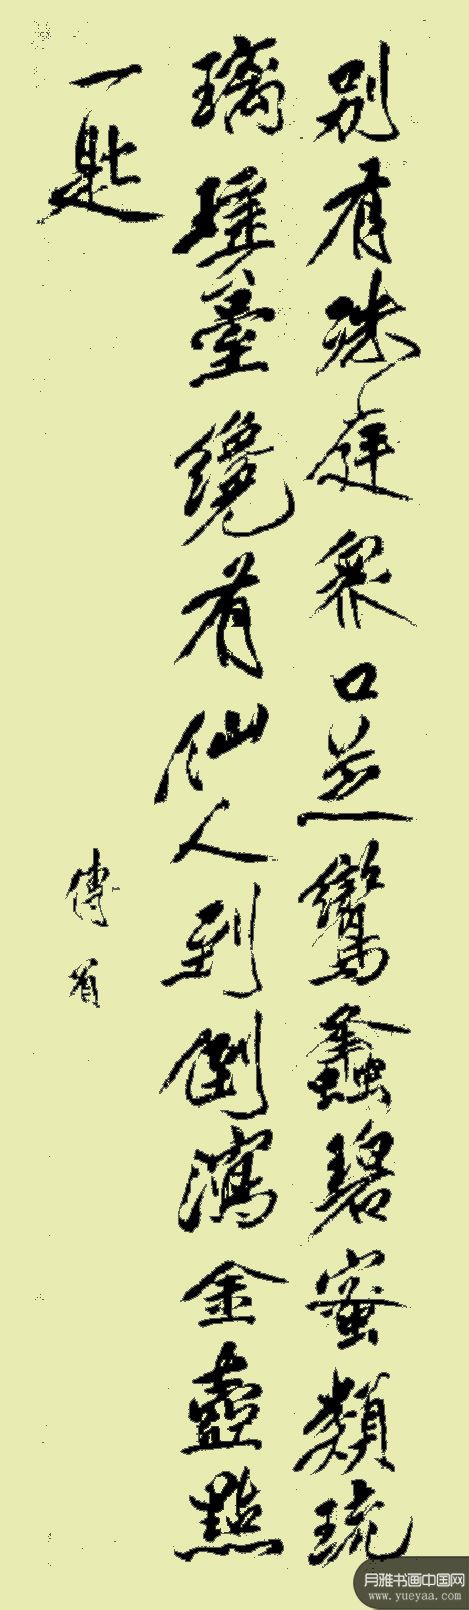 別有殊庭眾口芝鸞蠭碧蜜類琉
璃瑤臺纔有仙人到倒瀉金壺點
一匙
傅眉
月雅书画中国网
www.yueyaa.com